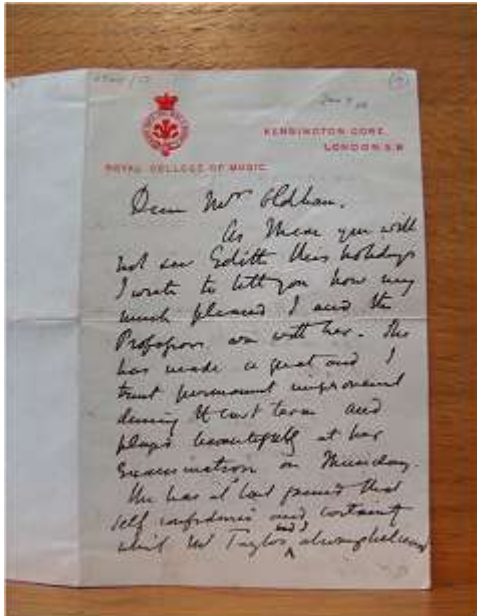 KENSINGTON GORE,
LONDON S.W
ROYAL COLLEGE OF MUSIC.
Dear Mrs Oldham.
As I hear you will
not see Edith this holidays
I write to tell you how very
much pleased I and the
Professors are with her. She
has made a great and I
trust permanent improvement
during the last term and
played beautifully at her
Examination on Thursday.
She has at last gained that
self confidence and certainty
which Mr Taylor and I always